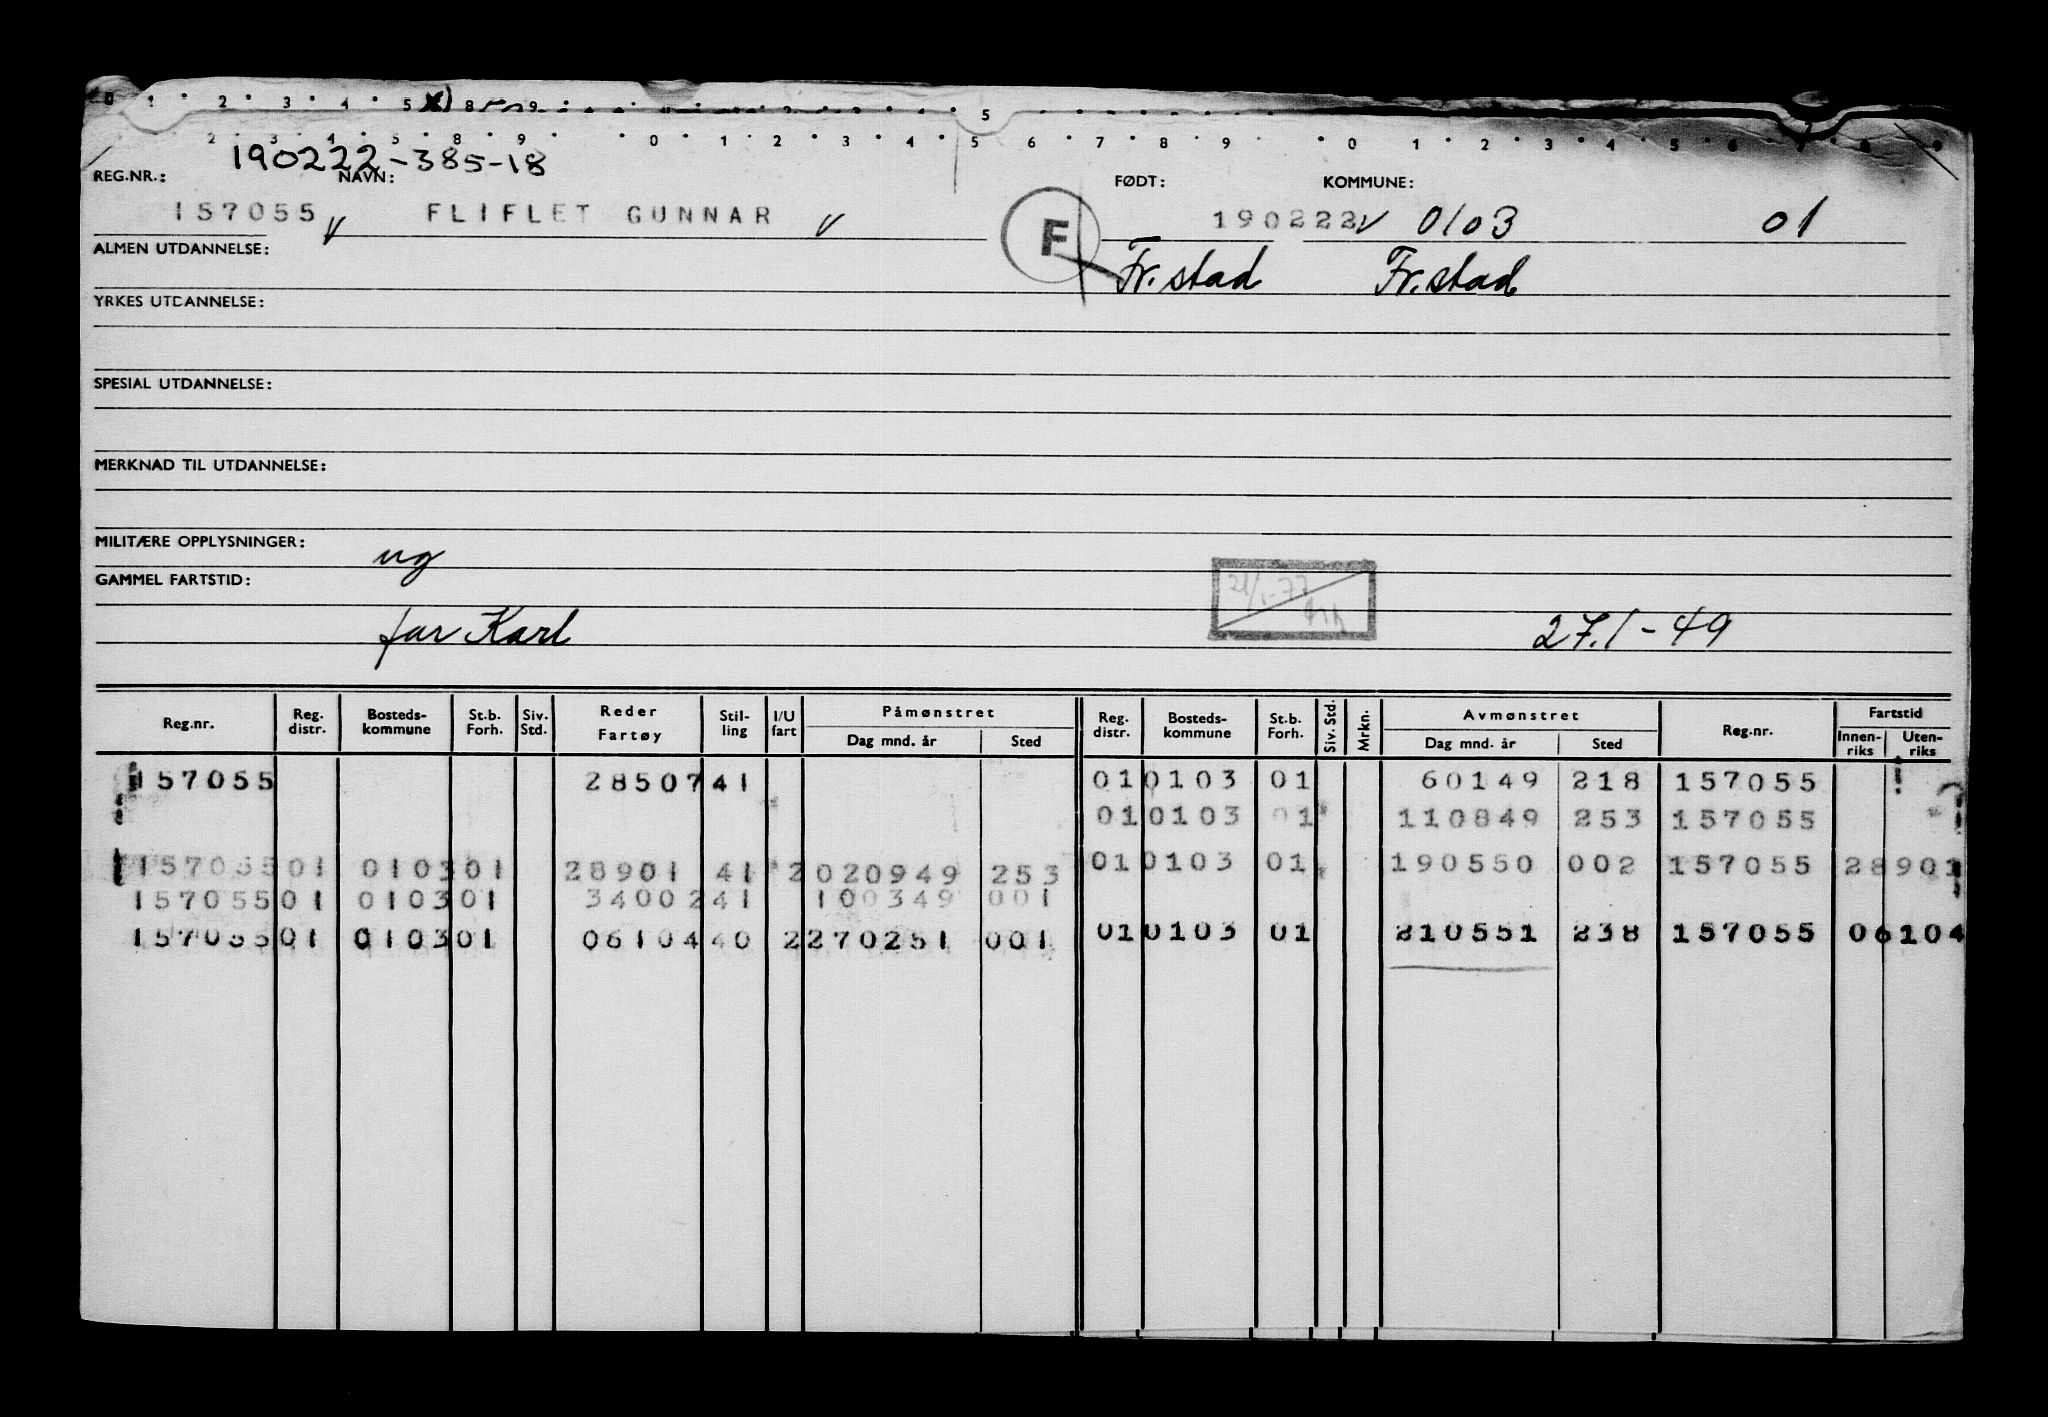 0 1 2 3 4 5 8 9 2 5
2 3 4 5 8 9 0 1 2 3 4 5 6 7 8 9 0 1 2 3 4 5 6 7 8 9
190222-385-18
REG.NR.: NAVN: FØDT: KOMMUNE:
157055 v FLIFLET GUNNAR v F 190222 v 0103 01
ALMEN UTDANNELSE: Fr.stad Fr.stad
YRKES UTDANNELSE:
SPESIAL UTDANNELSE:
MERKNAD TIL UTDANNELSE:
MILITÆRE OPPLYSNINGER: ug
GAMMEL FARTSTID: 21/1-77
far Karl 27.1-49
Reg.nr. Reg. distr. Bosteds-kommune St.b. Forh. Siv. Std. Reder Fartøy Stil-ling I/U fart Påmønstret Dag mnd. år Sted Reg. distr. Bosteds-kommune St.b. Forh. Siv. Std. Mrkn. Avmønstret Dag mnd. år Sted Reg.nr. Fartstid Innen-riks Uten-riks
157055 28507 41 01 0103 01 60149 218 157055
01 0103 01 110849 253 157055
157055 01 0103 01 28901 41 2 020949 253 01 0103 01 190550 002 157055 28901
157055 01 0103 01 34002 41 100349 001
157055 01 0103 01 06104 40 2 270251 001 01 0103 01 210551 238 157055 06104